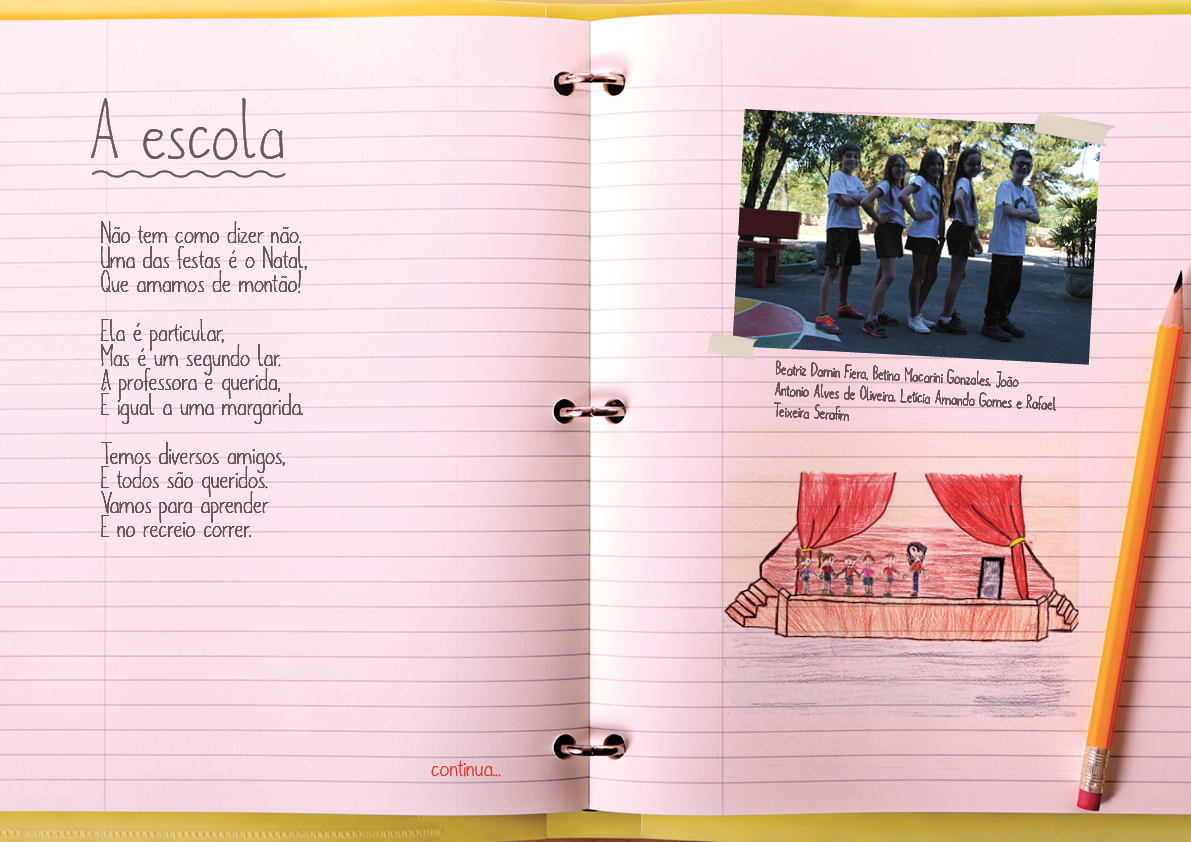 A escola
Não tem como dizer não.
Uma das festas é o Natal,
Que amamos de montão!
Ela é particular,
Mas é um segundo lar.
A professora é querida,
É igual a uma margarida.
Temos diversos amigos,
E todos são queridos.
Vamos para aprender
E no recreio correr.
continua...
Beatriz Damin Fiera, Betina Macarini Gonzales, João
Antonio Alves de Oliveira, Letícia Amanda Gomes e Rafael
Teixeira Serafim